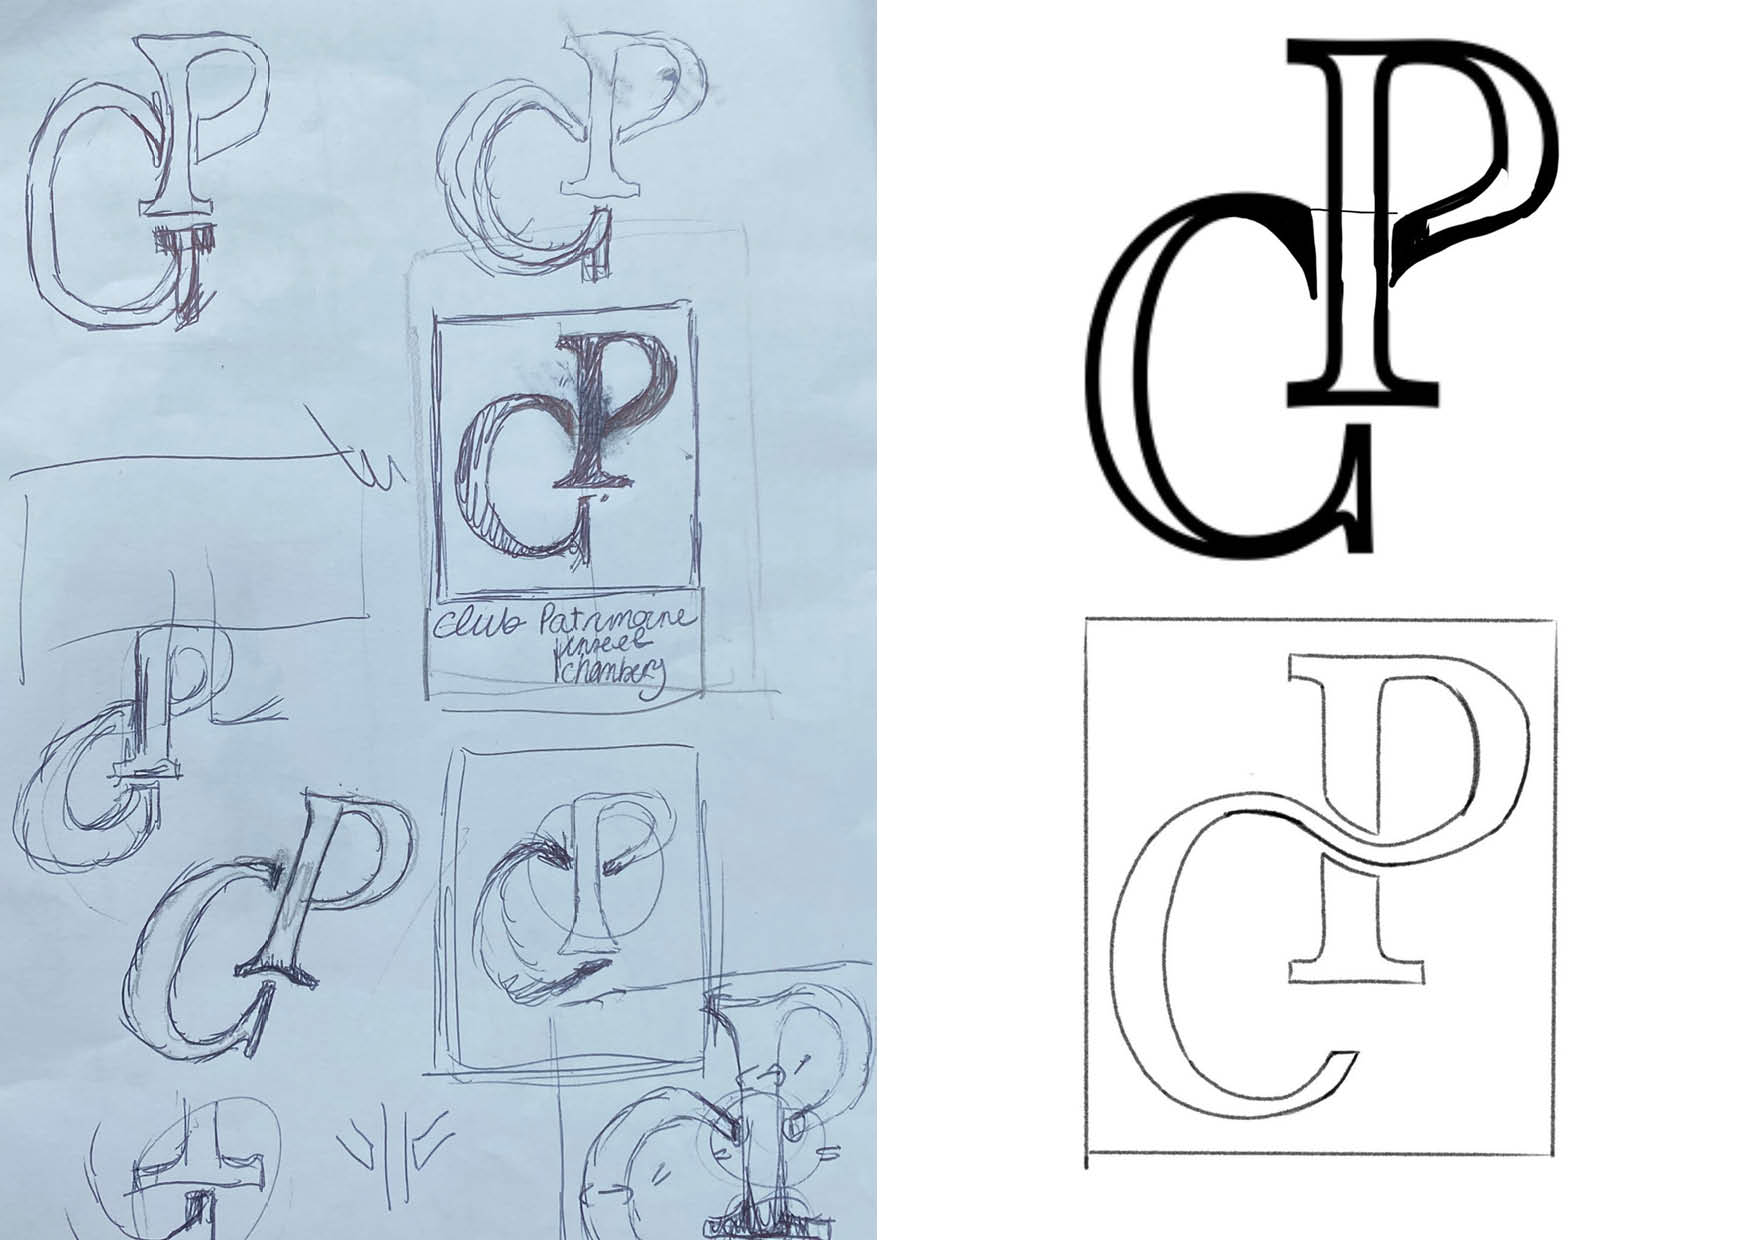 CP
CP
CP
Club Patrimoine
Chambery
CP
CP
CP
CP
CP
CP